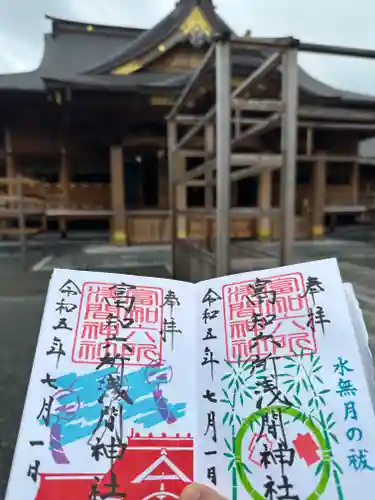 水無月の祓
奉拝
富知六所浅間神社
富知六所
浅間神社
令和五年七月一日
奉拝
富知六所浅間神社
富知六所
浅間神社
令和五年七月一日